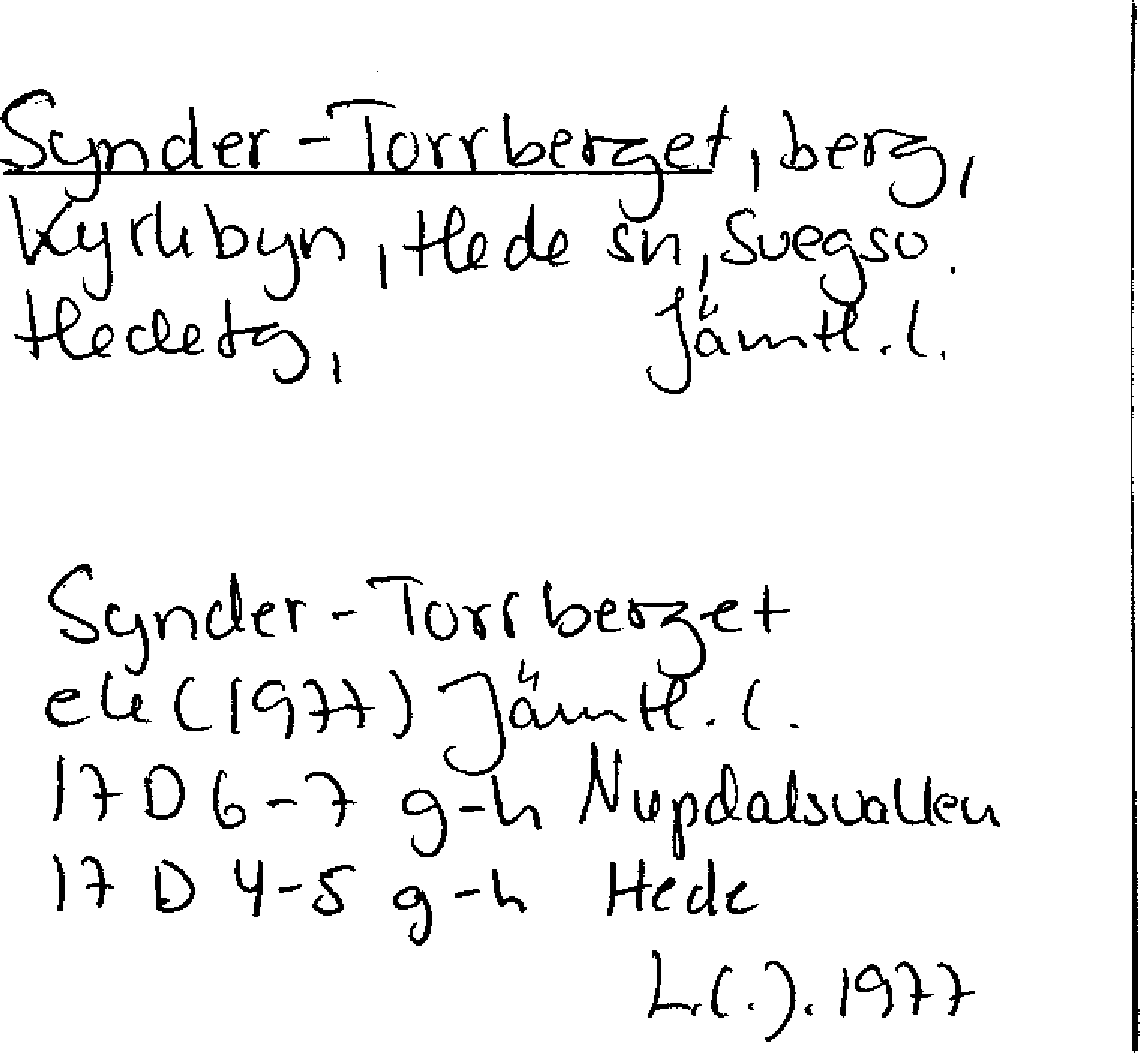 Synder-Torrberget, berg,
Kyrkbyn, Hede sn, Svegs o.
Hedetg, Jämtl. l.
Synder-Torrberget
ek (1977) Jämtl. l.
17 D 6-7 g-h Nupdalsvallen
17 D 4-5 g-h Hede
1977